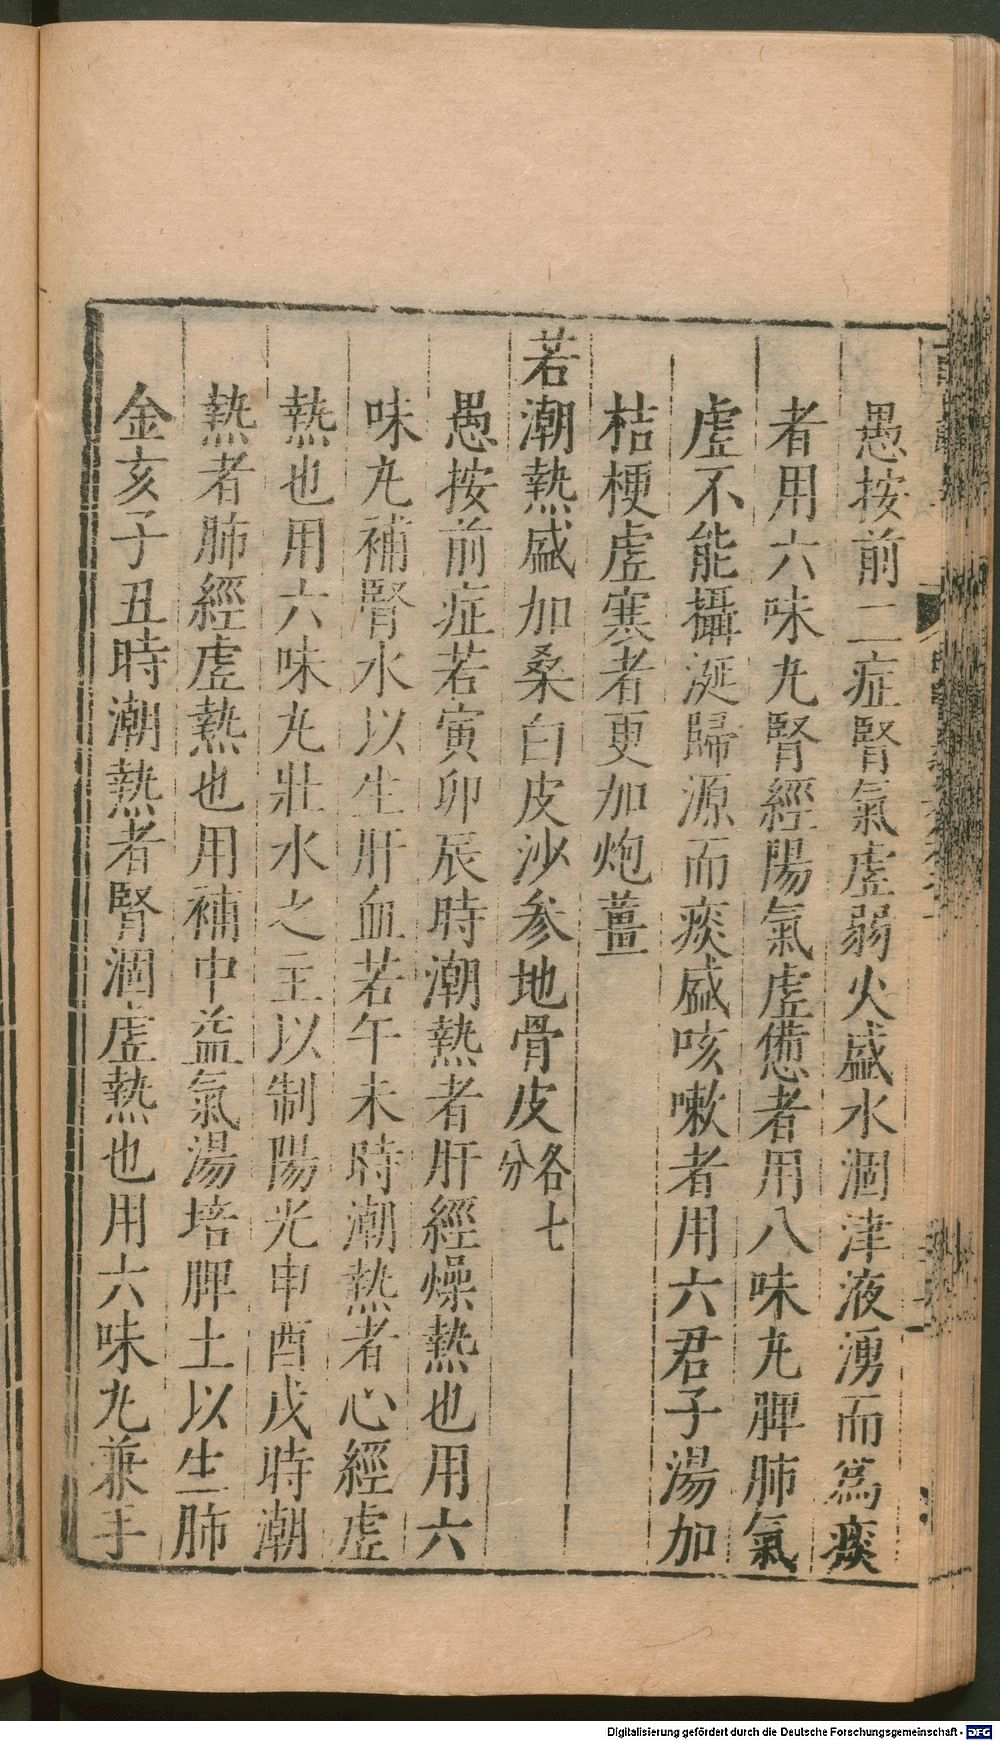 愚按前二症腎氣虛弱火盛水涸津液湧而爲痰
者用六味丸腎經陽氣虛憊者用八味丸脾肺氣
虛不能攝涎歸源而痰盛咳嗽者用六君子湯加
桔梗虛寒者更加炮薑
若潮熱盛加桑白皮沙參地骨皮各七分
愚按前症若寅卯辰時潮熱者肝經燥熱也用六
味丸補腎水以生肝血若午未時潮熱者心經虛
熱也用六味丸壯水之主以制陽光申酉戌時潮
熱者肺經虛熱也用補中益氣湯培脾土以生肺
金亥子丑時潮熱者腎涸虛熱也用六味丸兼手
Digitalisierung gefördert durch die Deutsche Forschungsgemeinschaft - DFG